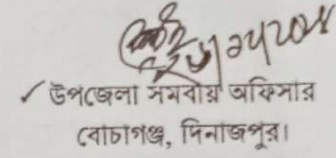 ✓ উপজেলা সমবায় অফিসার
বোচাগঞ্জ, দিনাজপুর।